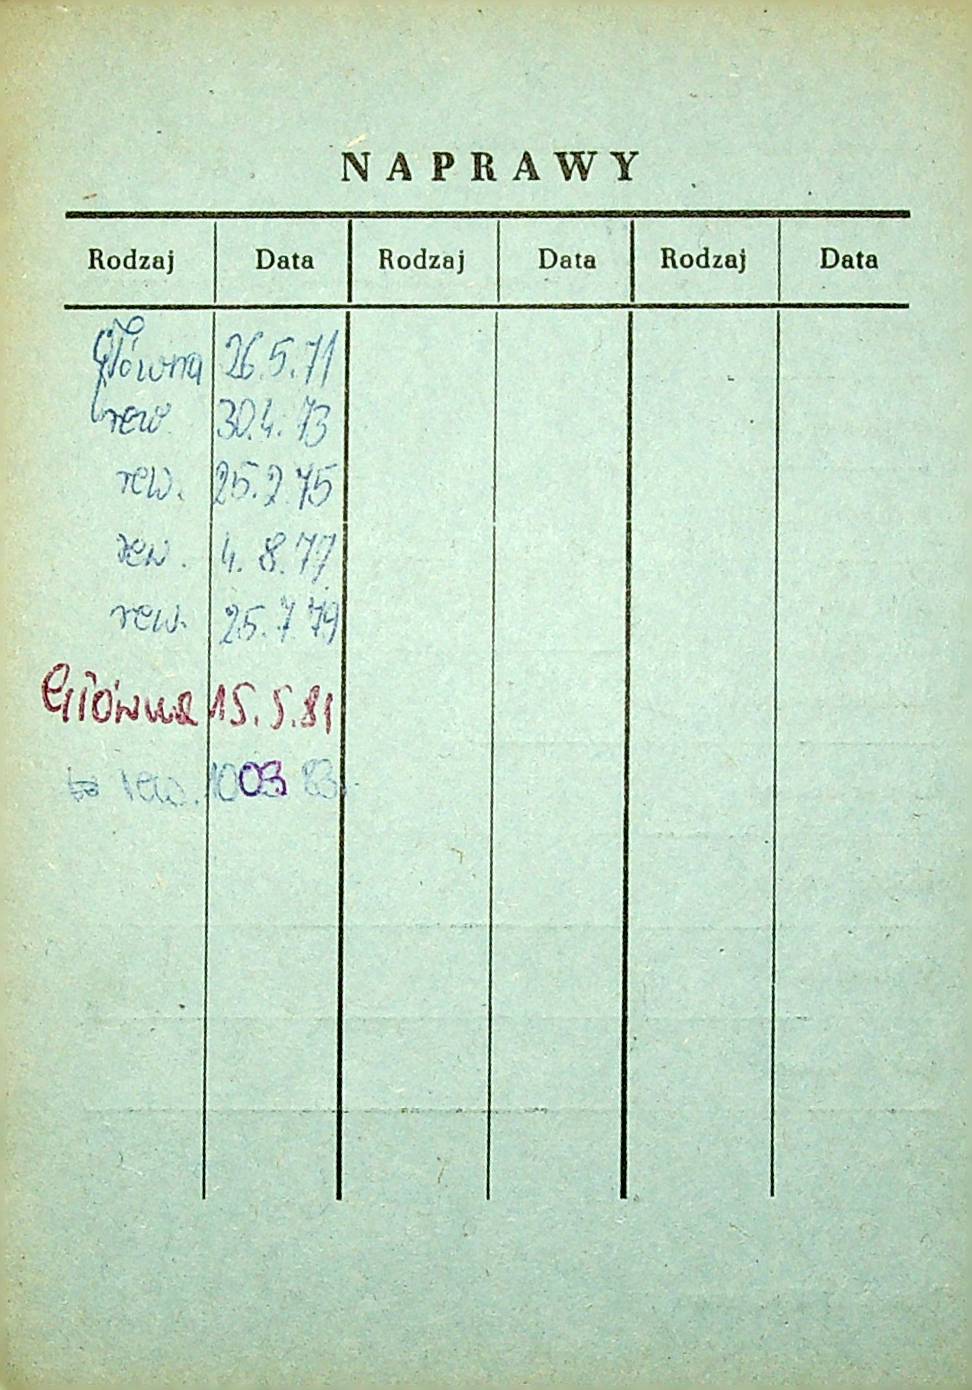 NAPRAWY
Rodzaj Data Rodzaj Data Rodzaj Data
Główna 26.5.71
rew 30.4.73
rew. 25.2.75
rew. 4.8.77
rew. 25.7.79
Główna 15.5.81
rew. 10 03 83